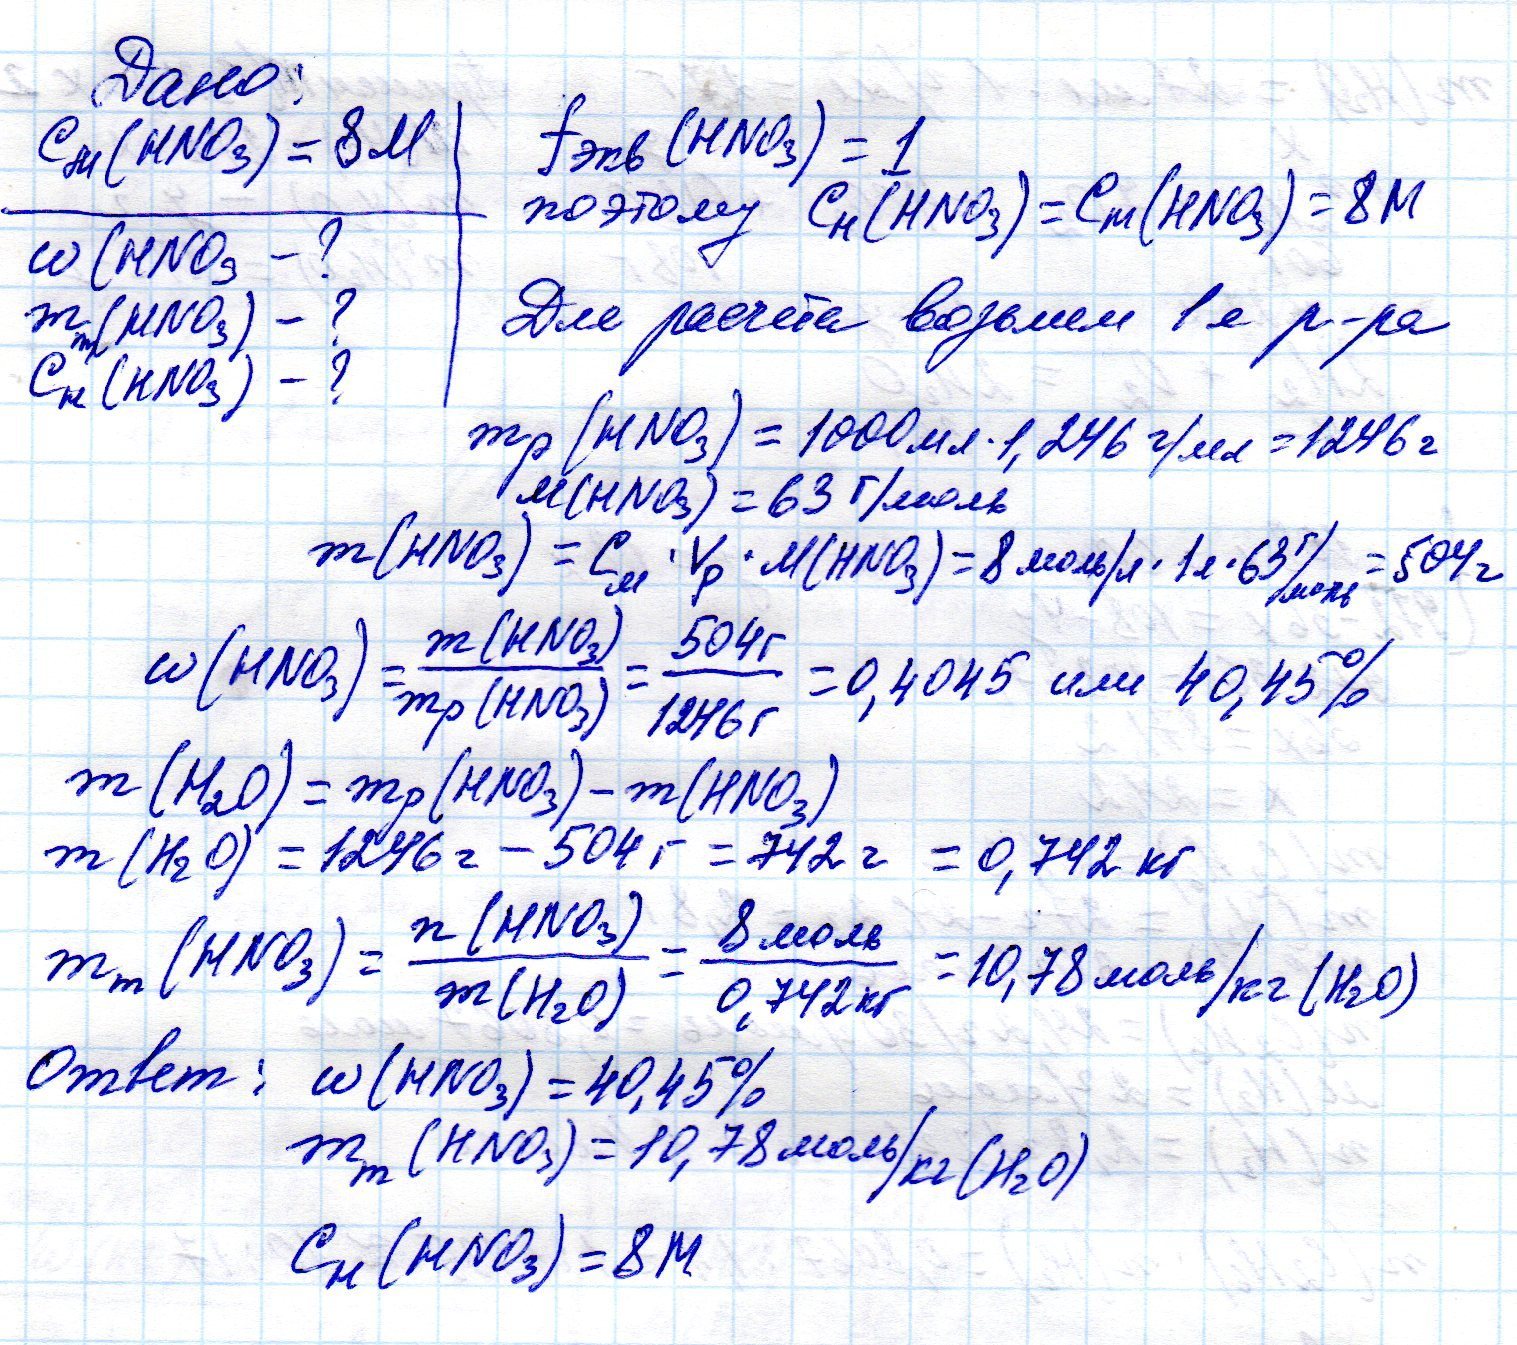 Дано:
Cм(HNO₃) = 8М
ω(HNO₃ - ?
mm(HNO₃) - ?
Cн(HNO₃) - ?
fэкв(HNO₃) = 1
поэтому Cн(HNO₃) = Cм(HNO₃) = 8М
Для расчёта возьмем 1л р-ра
mр(HNO₃) = 1000мл·1,246 г/мл = 1246г
М(HNO₃) = 63 г/моль
m(HNO₃) = Cм · Vр · М(HNO₃) = 8 моль/л · 1л · 63 г/моль = 504г
ω(HNO₃) = m(HNO₃)/mр(HNO₃) = 504г/1246г = 0,4045 или 40,45%
m(H₂O) = mр(HNO₃) - m(HNO₃)
m(H₂O) = 1246г - 504г = 742г = 0,742 кг
mm(HNO₃) = n(HNO₃)/m(H₂O) = 8 моль/0,742кг = 10,78 моль/кг(H₂O)
Ответ: ω(HNO₃) = 40,45%
mm(HNO₃) = 10,78 моль/кг(H₂O)
Cн(HNO₃) = 8М